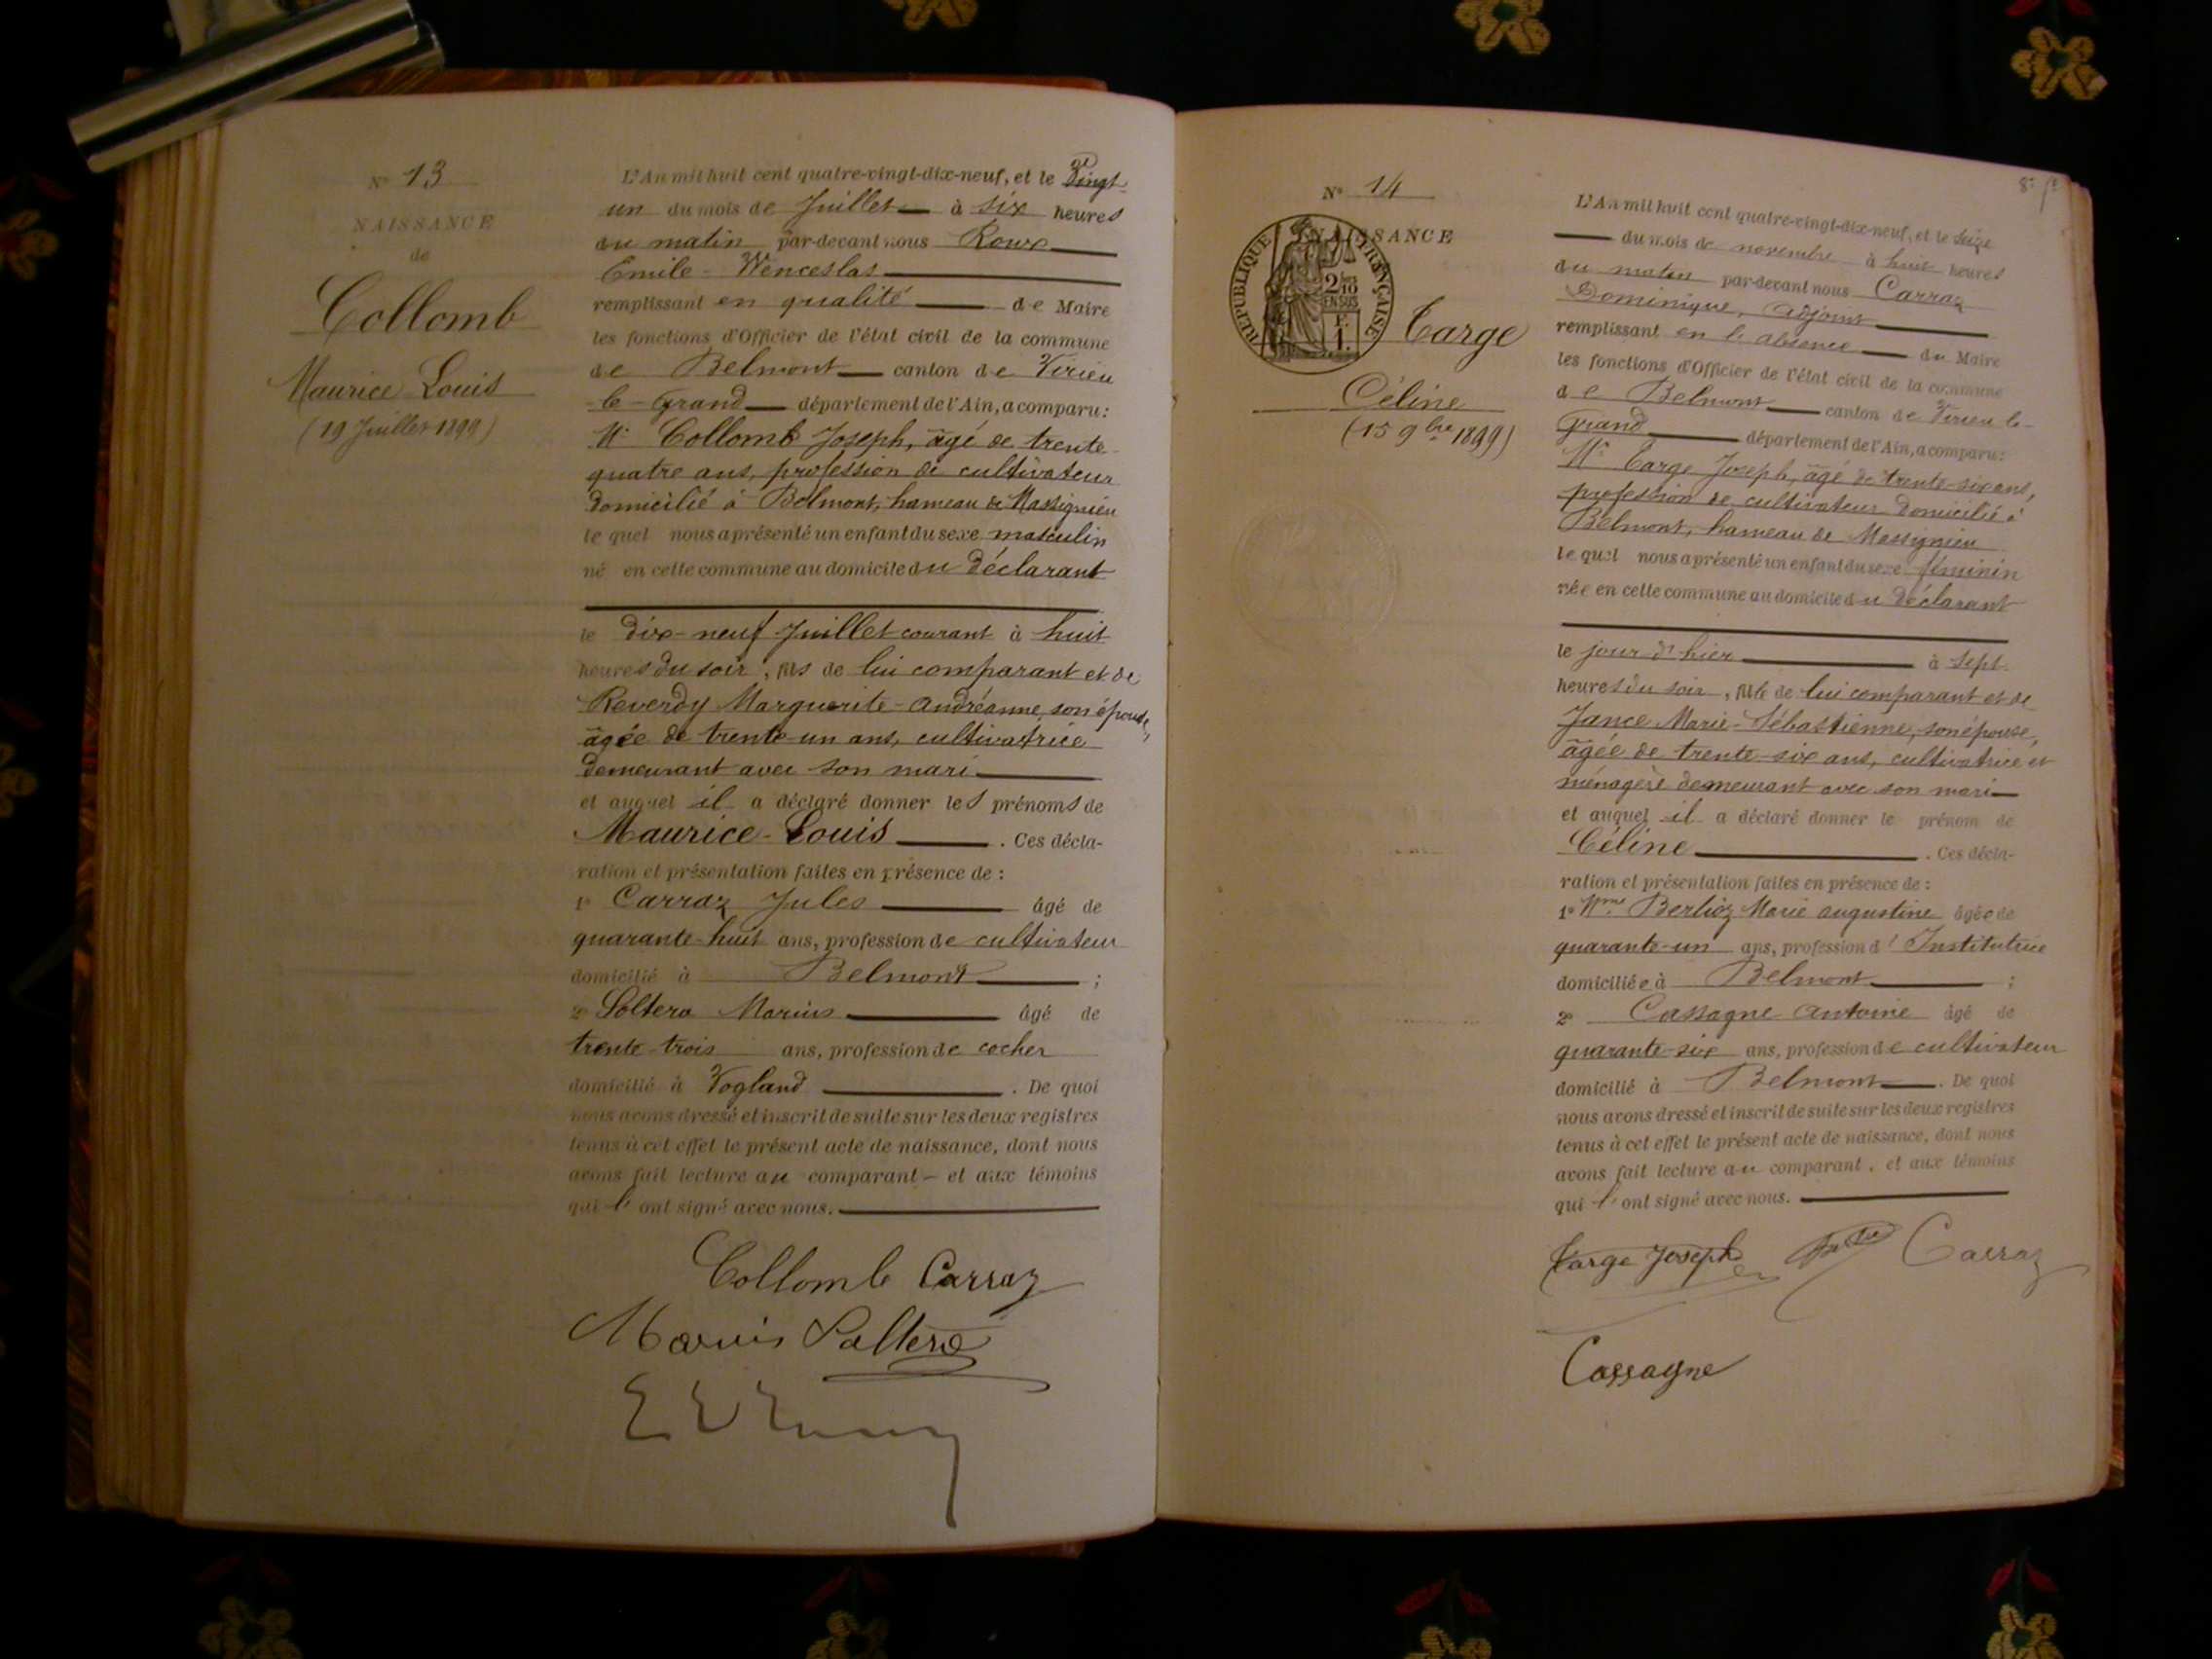 N° 13
NAISSANCE
de
Collomb
Maurice Louis
(19 Juillet 1899)
L'An mil huit cent quatre-vingt-dix-neuf, et le Vingt-
un du mois de Juillet à six heures
du matin par-devant nous Roux
Emile-Wenceslas
remplissant en qualité de Maire
les fonctions d'Officier de l'état civil de la commune
de Belmont canton de Virieu
le-Grand département de l'Ain, a comparu:
Mr Collomb Joseph, âgé de trente-
quatre ans, profession de cultivateur
domicilié à Belmont, hameau de Massignieu
le quel nous a présenté un enfant du sexe masculin
né en cette commune au domicile du déclarant
le dix-neuf Juillet courant à huit
heures du soir, fils de lui comparant et de
Reverdy Marguerite-Andréanne, son épouse,
âgée de trente-un ans, cultivatrice
demeurant avec son mari
et auquel il a déclaré donner les prénoms de
Maurice-Louis. Ces décla-
ration et présentation faites en présence de :
1° Carraz Jules âgé de
quarante-huit ans, profession de cultivateur
domicilié à Belmont ;
2° Soltera Marius âgé de
trente-trois ans, profession de cocher
domicilié à Vogland. De quoi
nous avons dressé et inscrit de suite sur les deux registres
tenus à cet effet le présent acte de naissance, dont nous
avons fait lecture au comparant – et aux témoins
qui l' ont signé avec nous.
Collomb Carraz
Marius Soltera
N° 14
NAISSANCE
REPUBLIQUE FRANÇAISE
2/10
EN SUS
F.
1.
Targe
Céline
(15 9bre 1899)
8e ft
L'An mil huit cent quatre-vingt-dix-neuf, et le seize
du mois de novembre à huit heures
du matin par-devant nous Carraz
Dominique, adjoint
remplissant en l'absence du Maire
les fonctions d'Officier de l'état civil de la commune
de Belmont canton de Virieu le-
Grand département de l'Ain, a comparu:
Mr Targe Joseph, âgé de trente-six ans,
profession de cultivateur domicilié à
Belmont, hameau de Massignieu
le quel nous a présenté un enfant du sexe féminin
née en cette commune au domicile du déclarant
le jour d'hier à sept
heures du soir, fille de lui comparant et de
Jance Marie-Sébastienne, son épouse,
âgée de trente-six ans, cultivatrice et
ménagère demeurant avec son mari
et auquel il a déclaré donner le prénom de
Céline. Ces décla-
ration et présentation faites en présence de :
1° Mme Berlioz Marie Augustine âgée de
quarante-un ans, profession d'Institutrice
domiciliée à Belmont ;
2° Cassagne Antoine âgé de
quarante-six ans, profession de cultivateur
domicilié à Belmont. De quoi
nous avons dressé et inscrit de suite sur les deux registres
tenus à cet effet le présent acte de naissance, dont nous
avons fait lecture au comparant, et aux témoins
qui l' ont signé avec nous.
Targe Joseph Carraz
Cassagne